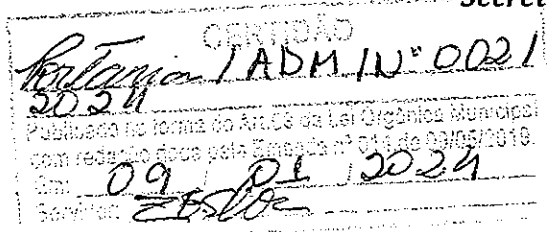 Secret
CERTIDÃO
Portaria / ADM / Nº 002 /
2024
Publicado na forma do Art.68 da Lei Orgânica Municipal
com redação dada pela Emenda nº 011 de 09/05/2019.
Em: 09 / 01 / 2024
Servidor: